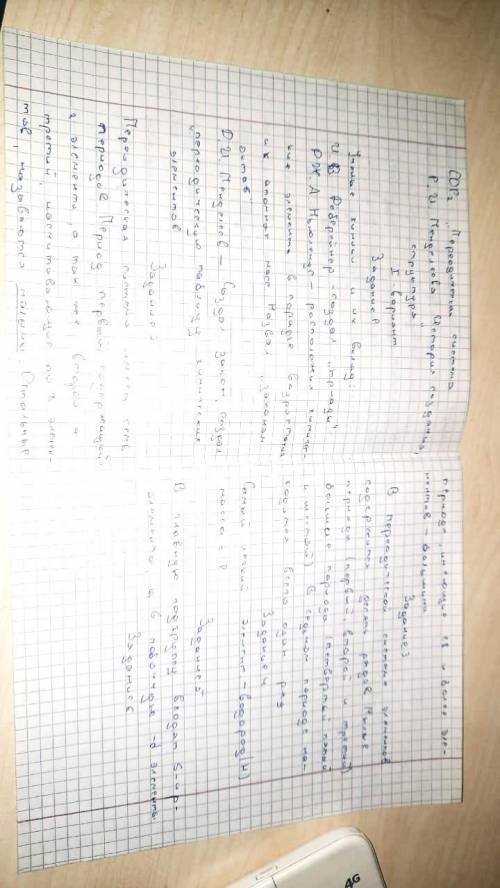 СОР2 Периодическая система
Д. И. Менделеева. История создания,
структура
I вариант
Задание 1
Ученые химики и их вклад:
И. В. Деберейнер - создал "триады"
Дж. А. Ньюлендс - расположил химичес-
кие элементы в порядке возрастания
их атомных масс. Назвал "законом
октав"
Д. И. Менделеев - создал закон, создал
периодическую таблицу химических
элементов
Задание 2
Периодическая система имеет семь
периодов. Период первый, содержащий
2 элемента а так же второй и
третий, насчитывающие по 8 элемен-
тов, называются малыми. Остальные
периоды, имеющие 18 и более эле-
ментов - большими
Задание 3
В периодической системе элементов
содержится десять рядов. Малые
периоды (первый, второй и третий)
большие периода (четвертый пятый
и шестой). В седьмом периоде на-
ходится всего один ряд
Задание 4
Самый легкий элемент - водород (H)
масса
Задание 5
В главную подгруппу входят s- и p-
элементы, а в побочную - d элементы.
Задание 6
4G